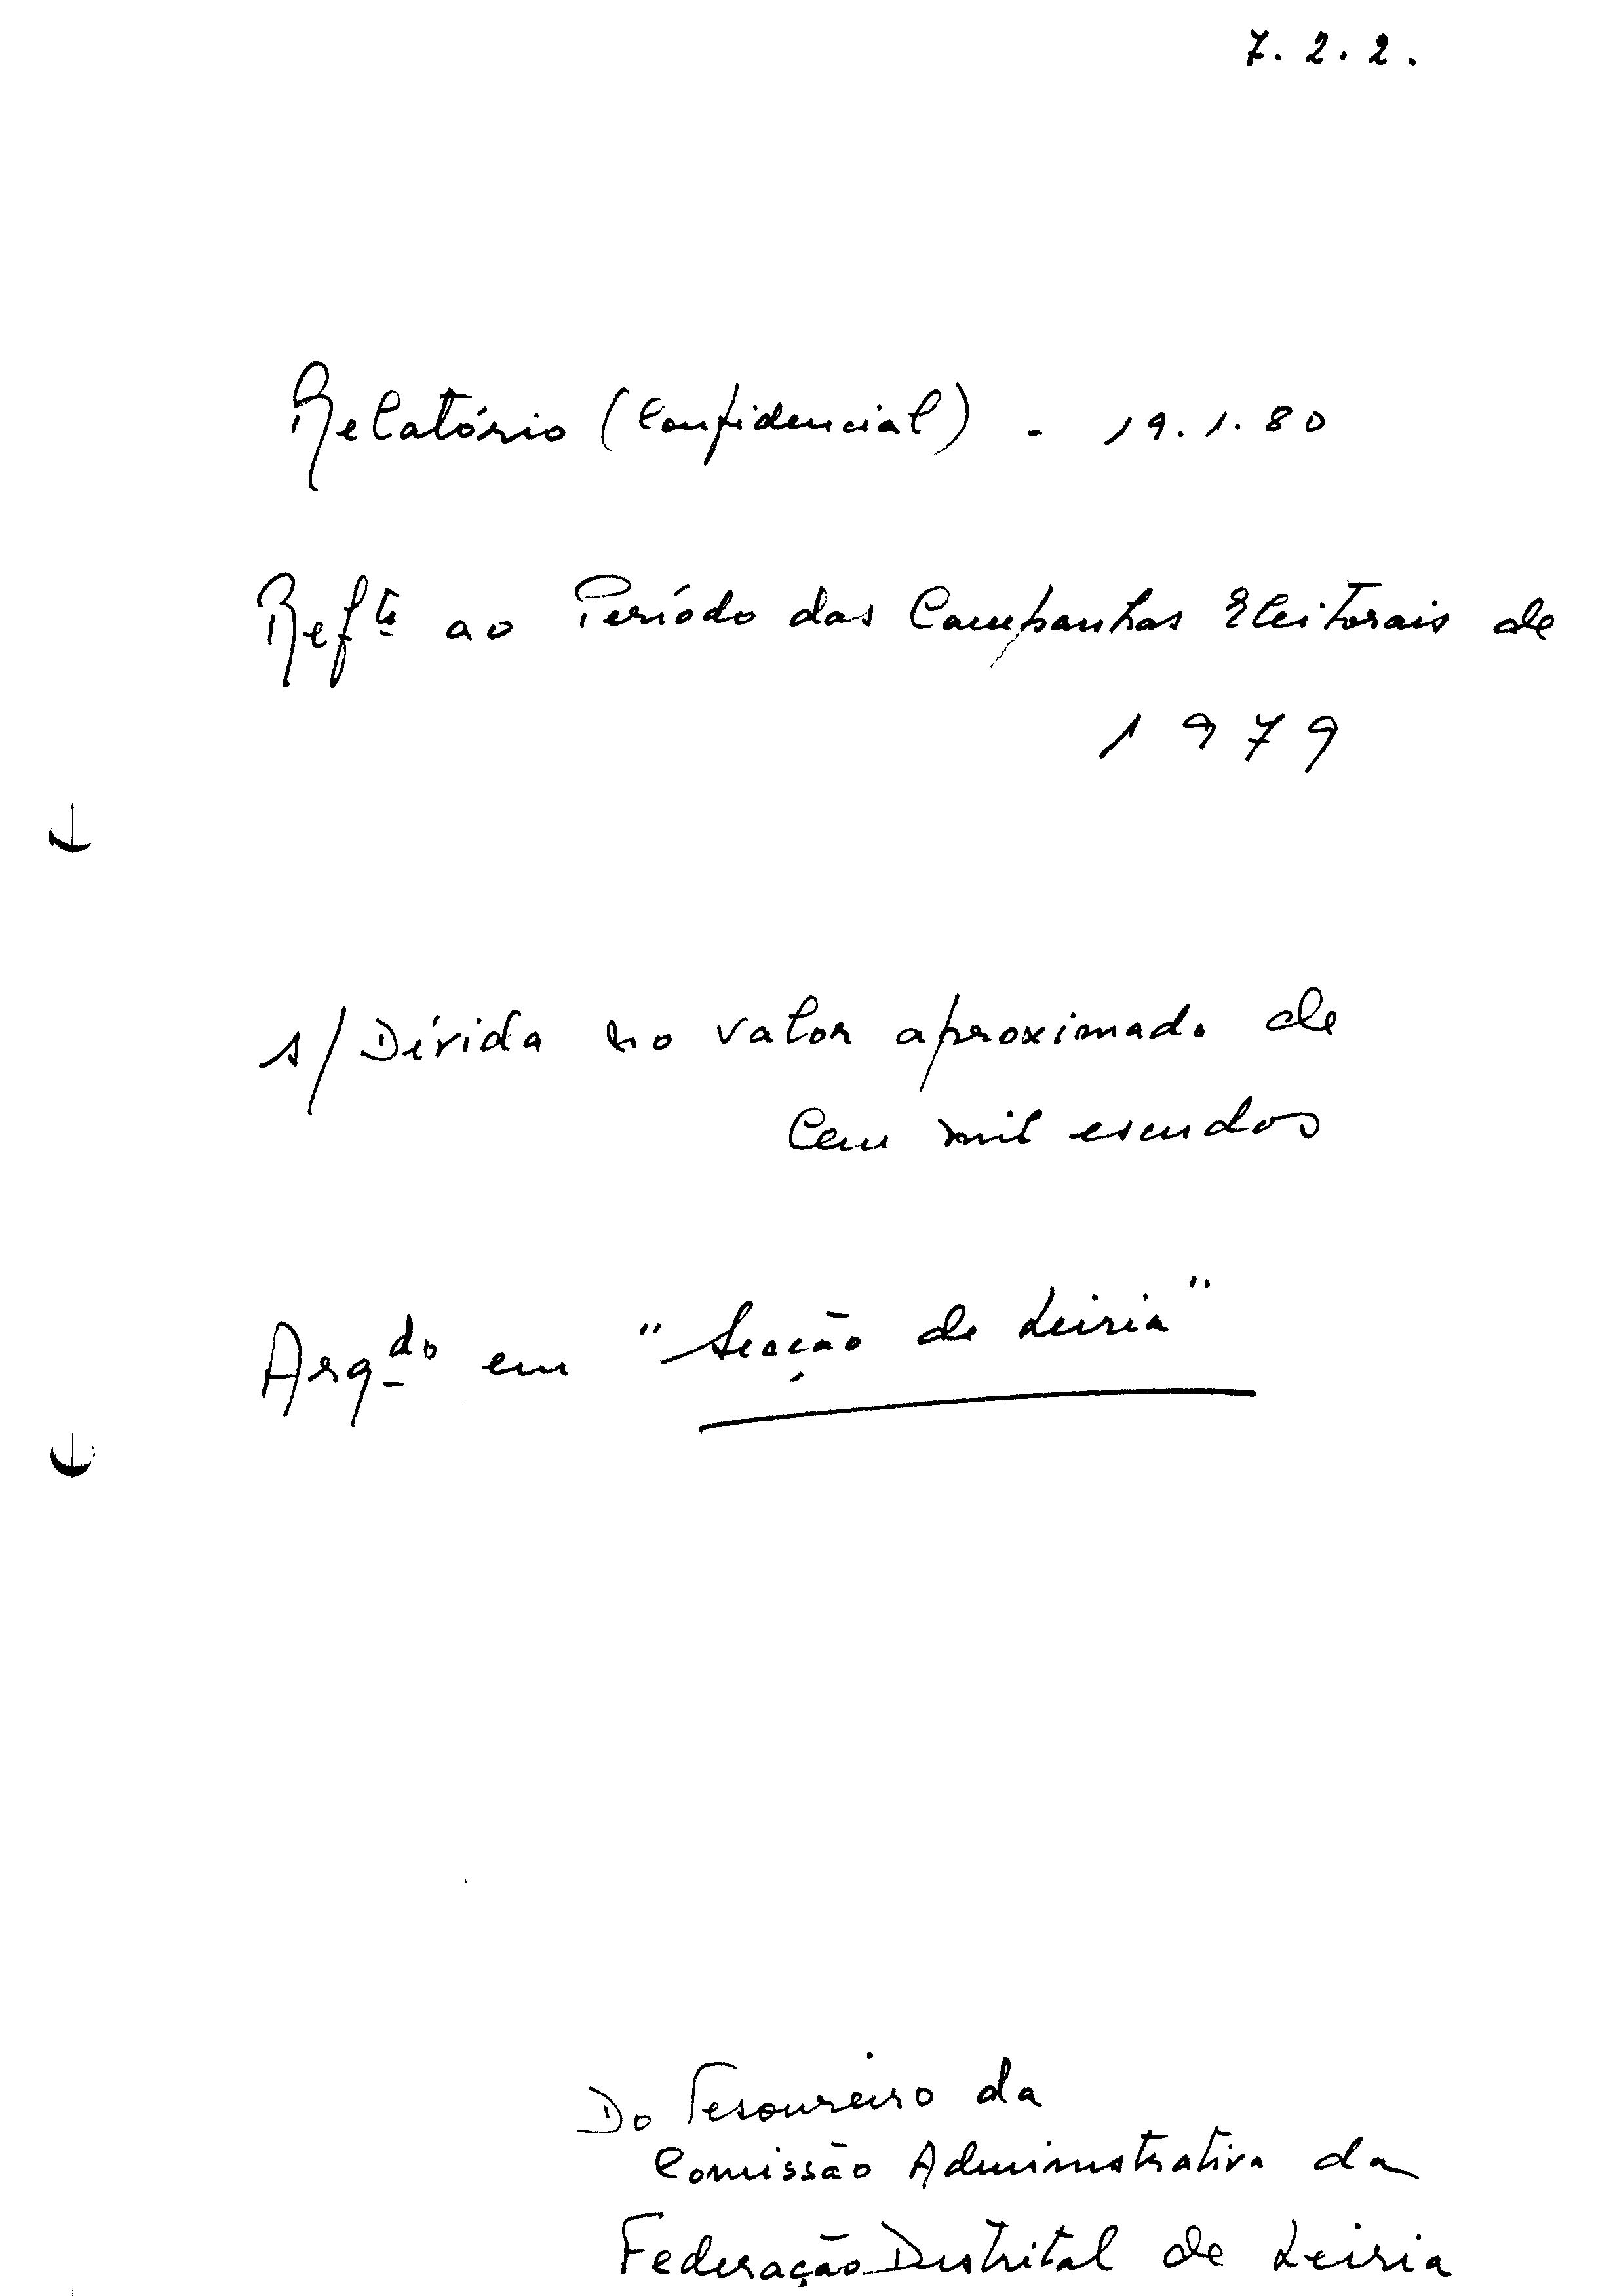 7.2.2.
Relatório (Confidencial) - 19.1.80
Ref.te ao Período das Campanhas Eleitorais de
1979
s/ Dívida no valor aproximado de
Cem mil escudos
Arq.do em "Secção de Leiria"
Do Tesoureiro da
Comissão Administrativa da
Federação Distrital de Leiria